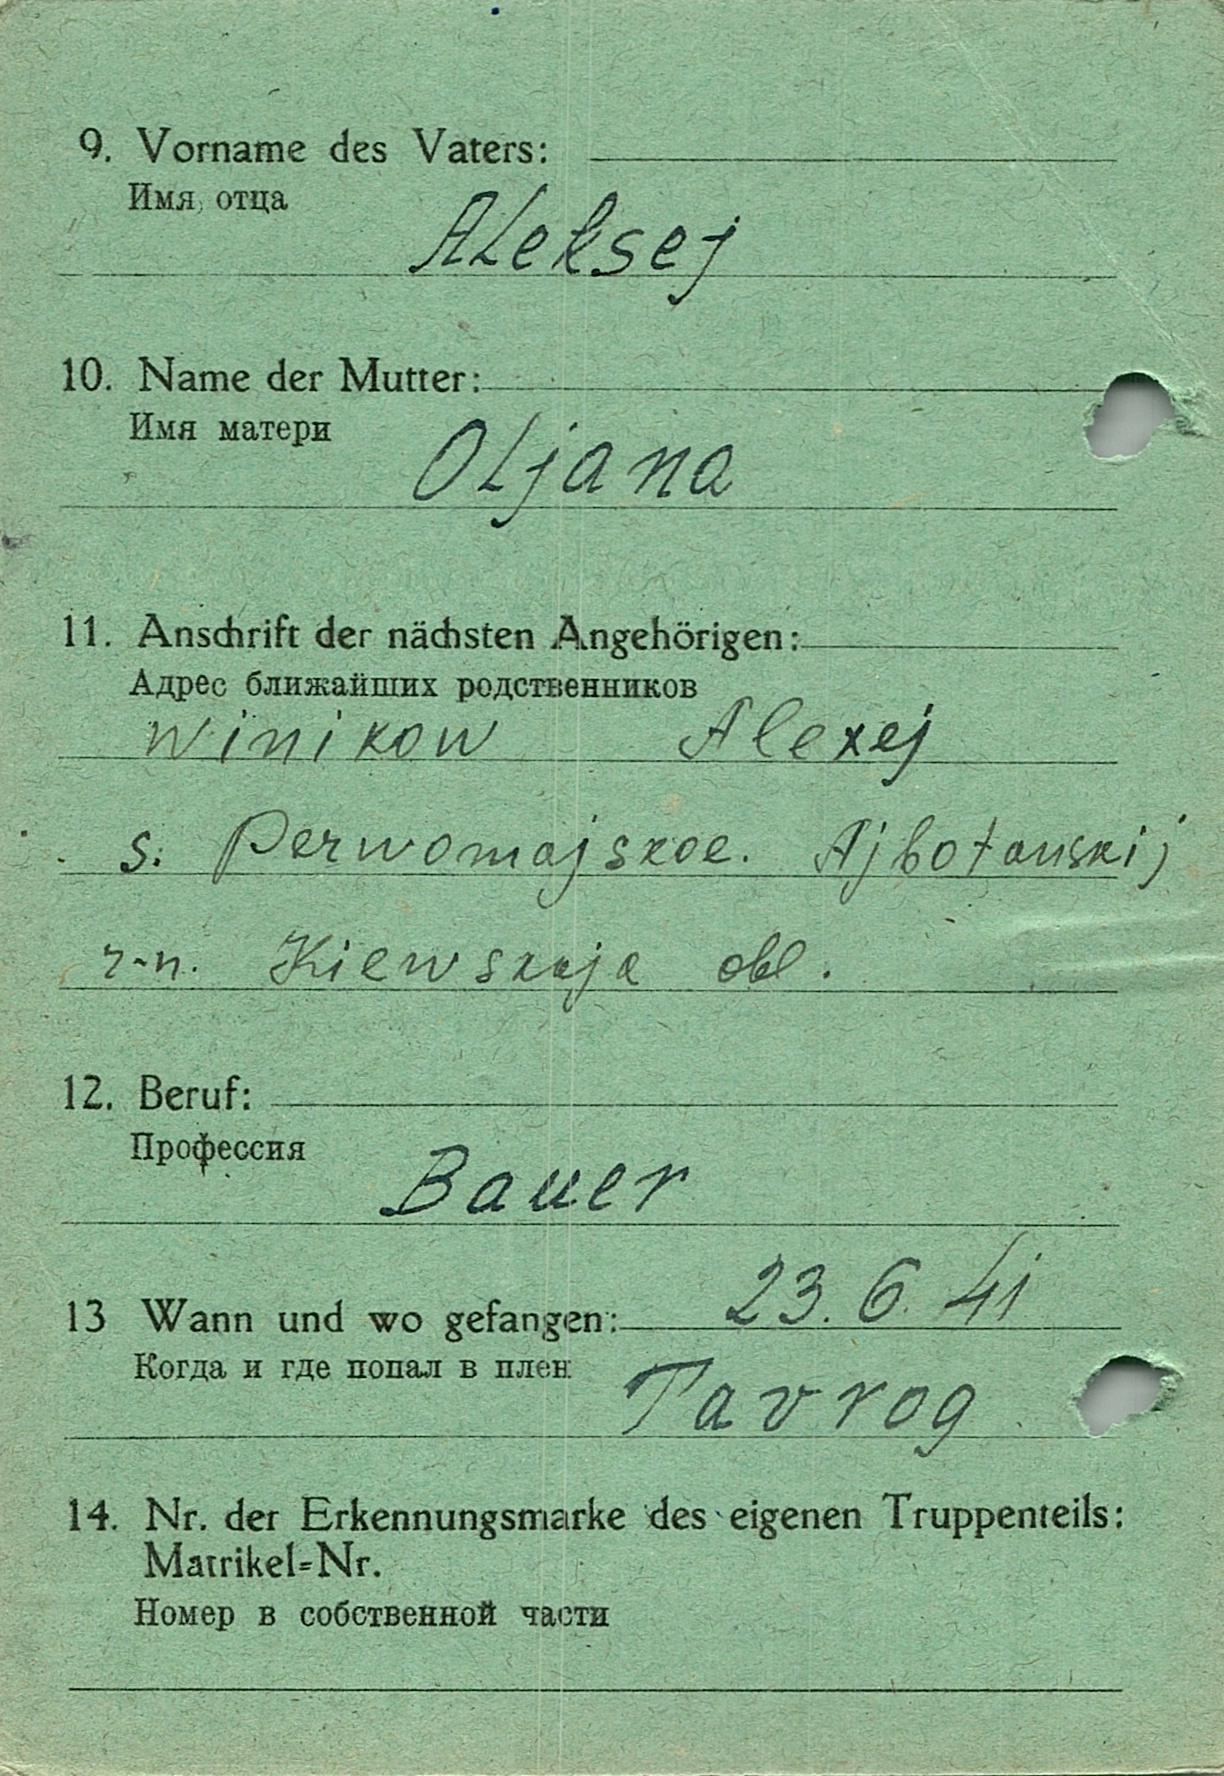 9. Vorname des Vaters:
Имя отца
Aleksej
10. Name der Mutter:
Имя матери
Oljana
11. Anschrift der nächsten Angehörigen:
Адрес ближайших родственников
Winikow Alexej
s. Perwomajskoe.
r-n. Kiewskaja obl.
12. Beruf:
Профессия
Bauer
13 Wann und wo gefangen: 23.6.41
Когда и где попал в плен
Tavrog
14. Nr. der Erkennungsmarke des eigenen Truppenteils:
Matrikel=Nr.
Номер в собственной части